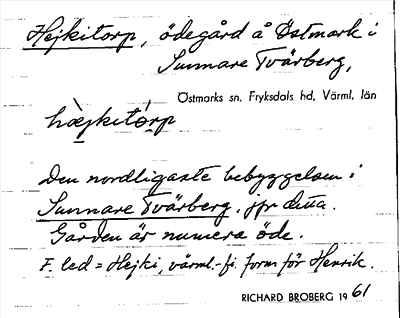 Hejkitorp, ödegård å Östmark i
Sunnare Tvärberg,
Östmarks sn, Fryksdals hd, Värml. län
hὲjkitórp
Den nordligaste bebyggelsen i
Sunnare Tvärberg, jfr detta.
Gården är numera öde.
F. led = Hejki, värml.-fi. form för Henrik.
RICHARD BROBERG 1961